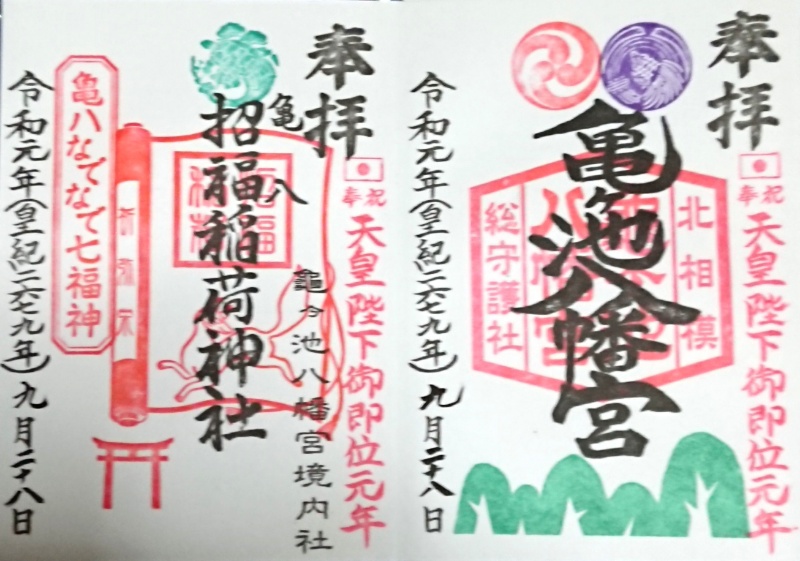 奉拝
奉祝
天皇陛下御即位元年
北相模
亀ヶ池八幡宮
総守護社
令和元年(皇紀二六七九年)九月二十八日
奉拝
奉祝
天皇陛下御即位元年
龜ヶ池八幡宮境内社
亀八
招福稲荷神社
亀八なでなで七福神
令和元年(皇紀二六七九年)九月二十八日